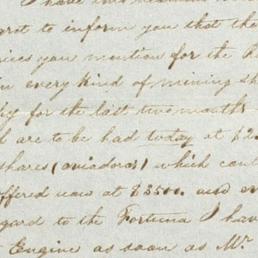 I have this
regret to inform you that the
prices you mention for the R
in every kind of mining sh
by for the last two months
d are to be had today at £2
shares (aviadores) which cont
offered now at £3500. and en
regard to the Fortuna I hav
Engine as soon as Mr.